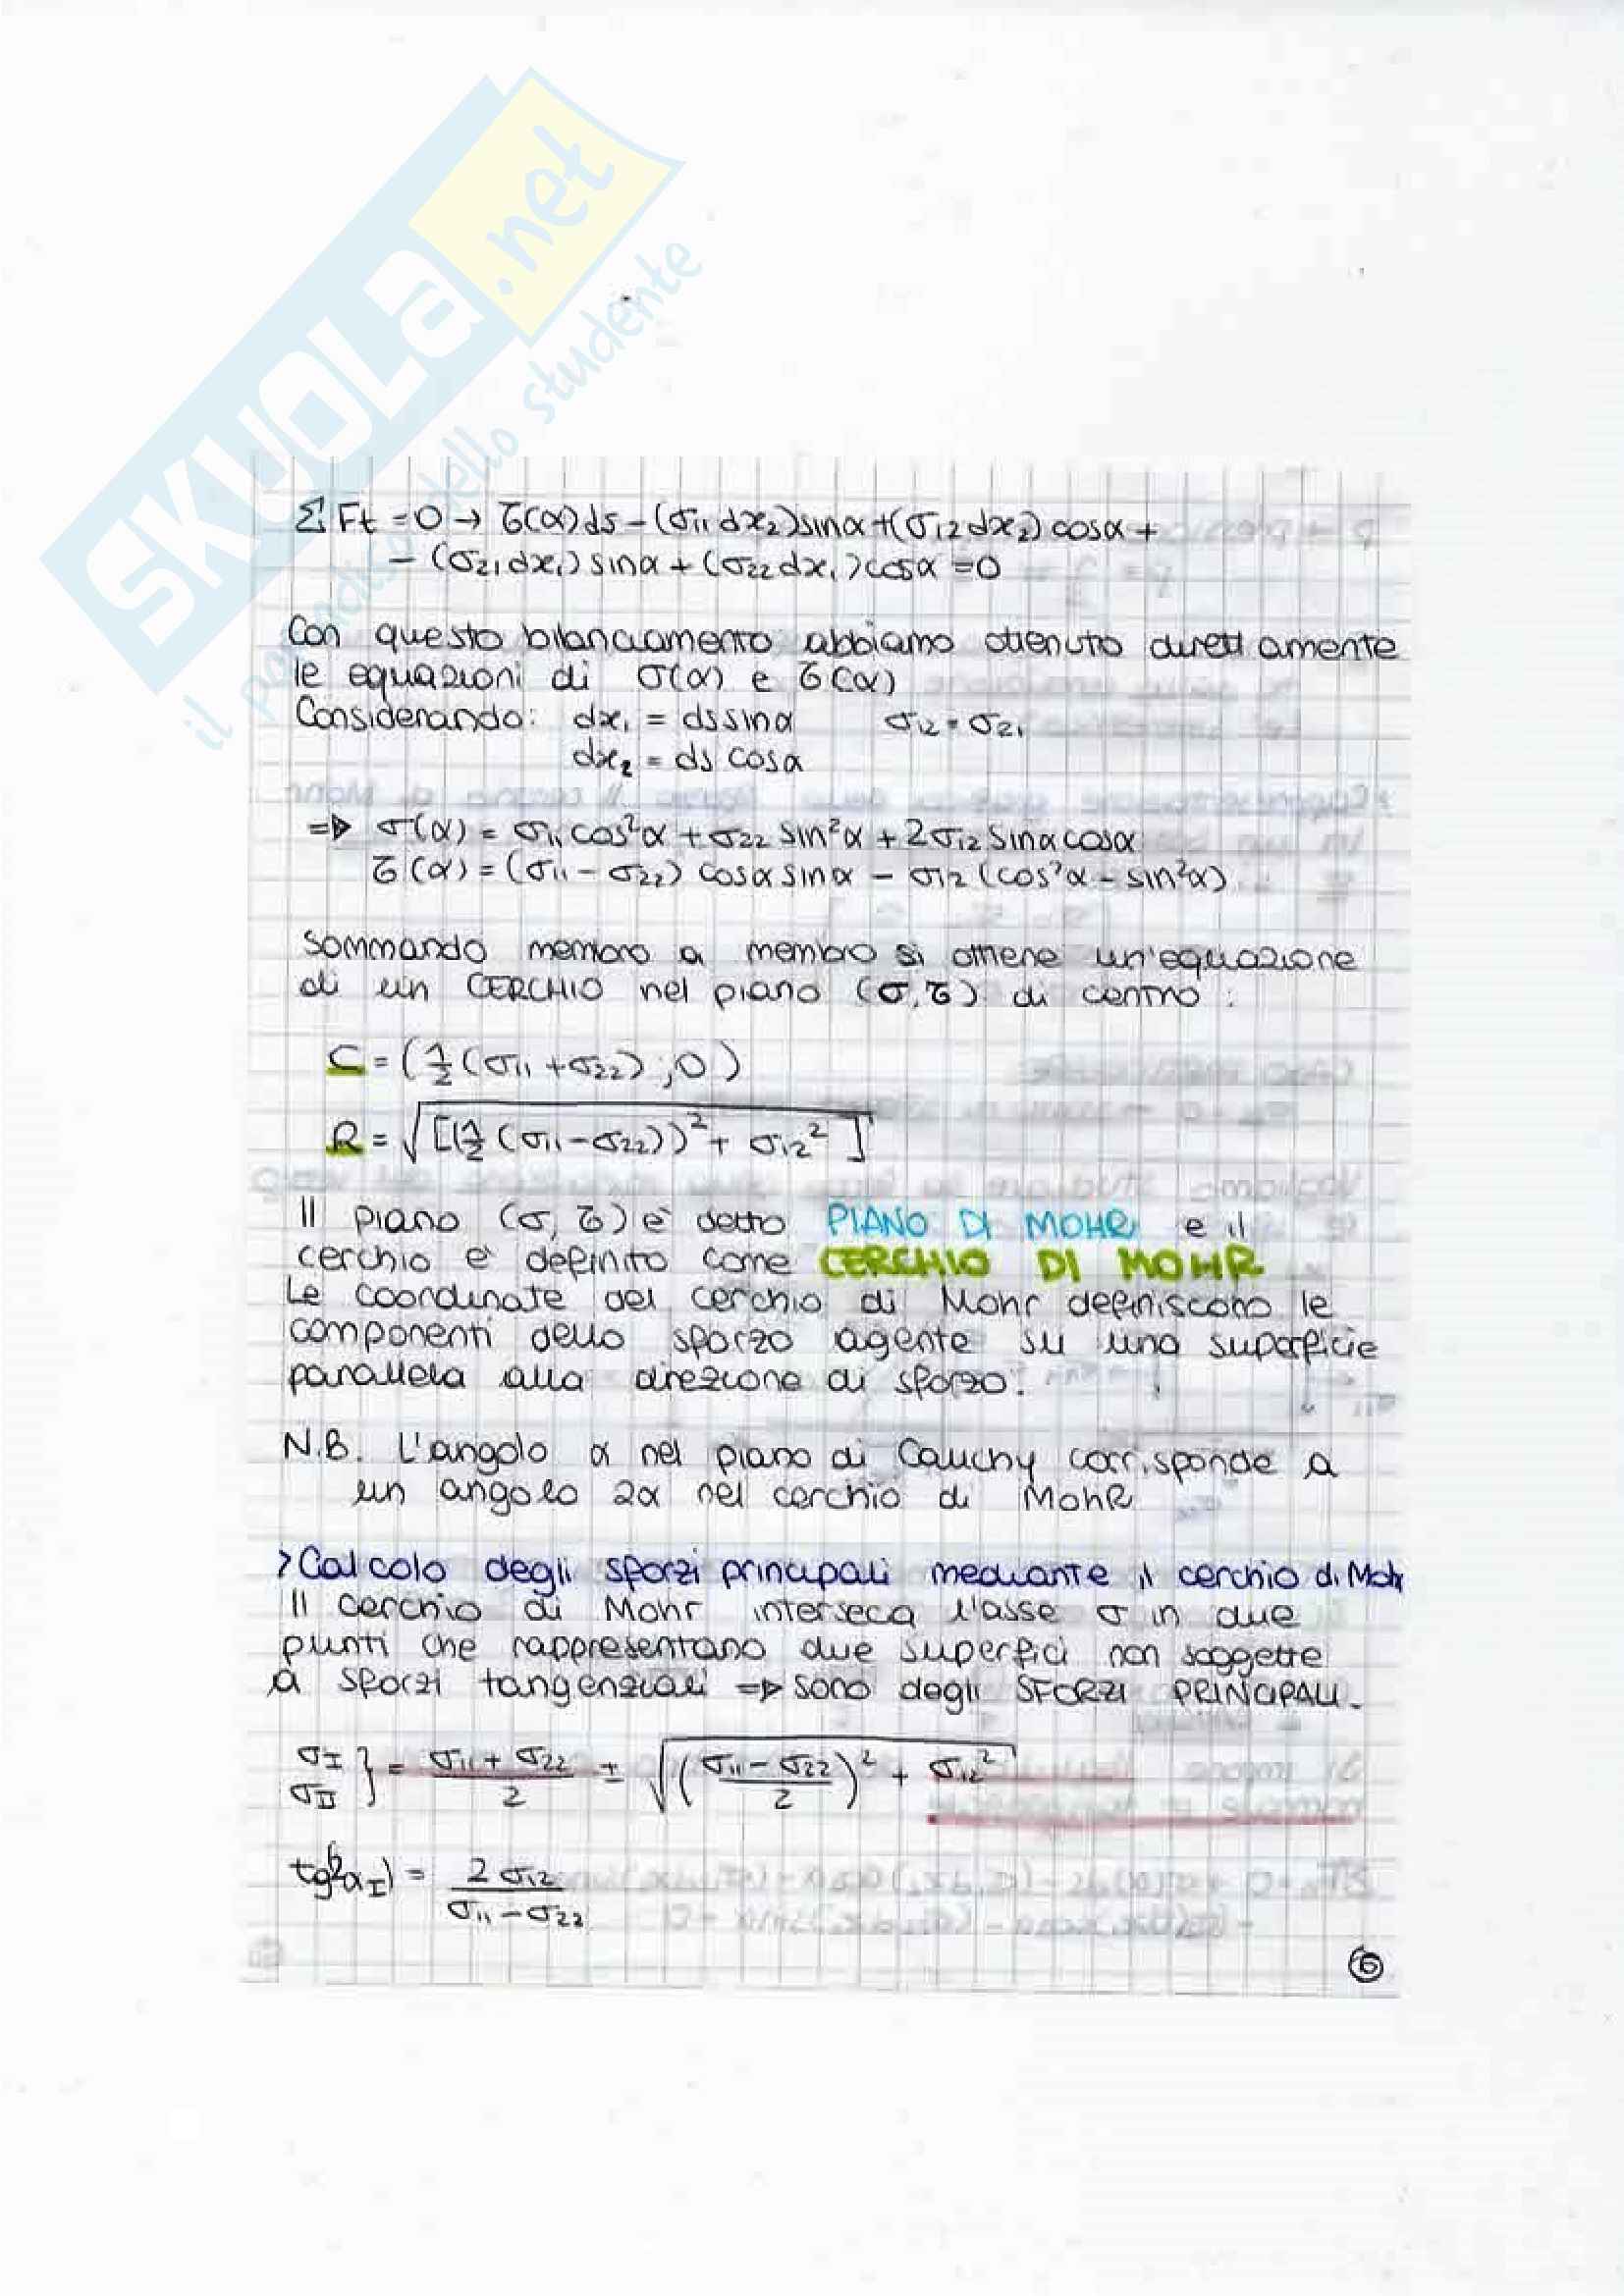 SKUOLA.net
il paradiso dello studente
Σ Ft = 0 → τ(α)ds - (σ11 dx2) sinα + (σ12 dx2) cosα +
- (σ21 dx1) sinα + (σ22 dx1) cosα = 0
Con questo bilanciamento abbiamo ottenuto direttamente
le equazioni di σ(α) e τ(α)
Considerando: dx1 = ds sinα σ12 = σ21
dx2 = ds cosα
=> σ(α) = σ11 cos²α + σ22 sin²α + 2σ12 sinα cosα
τ(α) = (σ11 - σ22) cosα sinα - σ12 (cos²α - sin²α)
Sommando membro a membro si ottiene un'equazione
di un CERCHIO nel piano (σ, τ) di centro :
C = (1/2 (σ11 + σ22) ; 0)
R = √[(1/2 (σ11 - σ22))² + σ12²]
Il piano (σ, τ) è detto PIANO DI MOHR e il
cerchio è definito come CERCHIO DI MOHR
Le coordinate del cerchio di Mohr definiscono le
componenti dello sforzo agente su una superficie
parallela alla direzione di sforzo.
N.B. L'angolo α nel piano di Cauchy corrisponde a
un angolo 2α nel cerchio di MohR
> Calcolo degli sforzi principali mediante il cerchio di Mohr
Il cerchio di Mohr interseca l'asse σ in due
punti che rappresentano due superfici non soggette
a sforzi tangenziali => sono degli SFORZI PRINCIPALI.
σI σII } = (σ11 + σ22)/2 ± √((σ11 - σ22)/2)² + σ12²
tg(2αI) = 2σ12/(σ11 - σ22)
6